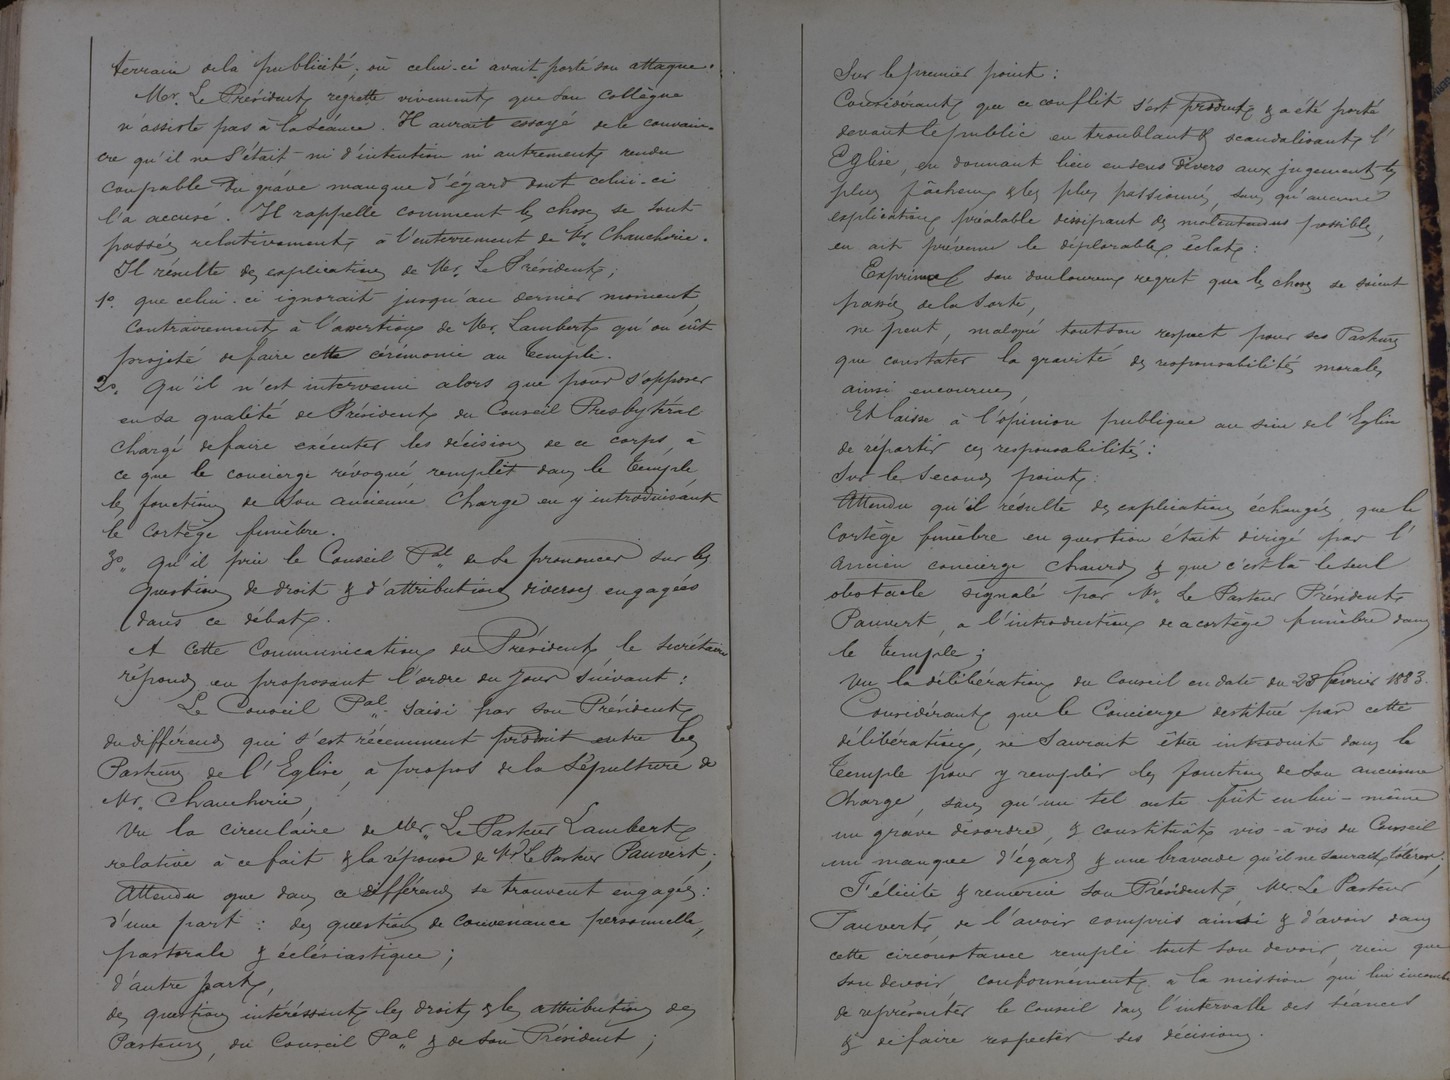 terrain de la publicité, où celui-ci avait porté son attaque.
Mr. Le Président regrette vivement que son collègue
n'assiste pas à la séance. Il aurait essayé de le convain-
cre qu'il ne s'était ni d'intention ni autrement rendu
coupable du grave manque d'égard dont celui-ci
l'a accusé. Il rappelle comment les choses se sont
passées relativement à l'enterrement de Mr. Chaucherie.
Il résulte des explications de Mr. Le Président;
1º. que celui-ci ignorait jusqu'au dernier moment,
contrairement à l'assertion de Mr. Lambert qu'on eût
projeté de faire cette cérémonie au Temple.
2º. Qu'il n'est intervenu alors que pour s'opposer
en sa qualité de Président du Conseil Presbytéral
chargé de faire exécuter les décisions de ce corps, à
ce que le concierge révoqué remplît dans le Temple
les fonctions de son ancienne charge en y introduisant
le cortège funèbre.
3º. Qu'il prie le Conseil Pal de se prononcer sur les
questions de droit & d'attributions diverses engagées
dans ce débat.
A cette communication du Président le secrétaire
répond en proposant l'ordre du jour suivant:
Le Conseil Pal saisi par son Président
du différend qui s'est récemment produit entre les
Pasteurs de l'Eglise, à propos de la sépulture de
Mr. Chaucherie,
Vu la circulaire de Mr. Le Pasteur Lambert
relative à ce fait & la réponse de Mr Le Pasteur Pauvert;
Attendu que dans ce différend se trouvent engagées:
d'une part: des questions de convenance personnelle,
pastorale & éclésiastique;
d'autre part,
des questions intéressant les droits & les attributions des
Pasteurs, du Conseil Pal & de son Président;
Sur le premier point:
Considérant que ce conflit s'est produit & a été porté
devant le public en troublant & scandalisant l'
Eglise, en donnant lieu en sens divers aux jugements les
plus fâcheux & les plus passionnés, sans qu'aucune
explication préalable dissipant des malentendus possibles,
en ait prévenu le déplorable éclat:
Exprime son douloureux regret que les choses se soient
passées de la sorte,
ne peut, malgré tout son respect pour ses Pasteurs
que constater la gravité des responsabilités morales
ainsi encourues,
Et laisse à l'opinion publique au sein de l'Eglise
de répartir ces responsabilités:
Sur le second point:
Attendu qu'il résulte des explications échangées que le
cortège funèbre en question était dirigé par l'
ancien concierge & que c'est là le seul
obstacle signalé par Mr. Le Pasteur Président
Pauvert, à l'introduction de ce cortège funèbre dans
le Temple;
Vu la délibération du Conseil en date du 28 février 1883.
Considérant que le Concierge destitué par cette
délibération, ne saurait être introduit dans le
Temple pour y remplir les fonctions de son ancienne
charge, sans qu'un tel acte fût en lui-même
un grave désordre, & constituât vis-à-vis du Conseil
un manque d'égards & une bravade qu'il ne saurait tolérer;
Félicite & remercie son Président, Mr. Le Pasteur
Pauvert, de l'avoir compris ainsi & d'avoir dans
cette circonstance rempli tout son devoir, rien que
son devoir, conformément à la mission qui lui incombe
de représenter le Conseil dans l'intervalle des séances
& de faire respecter ses décisions.